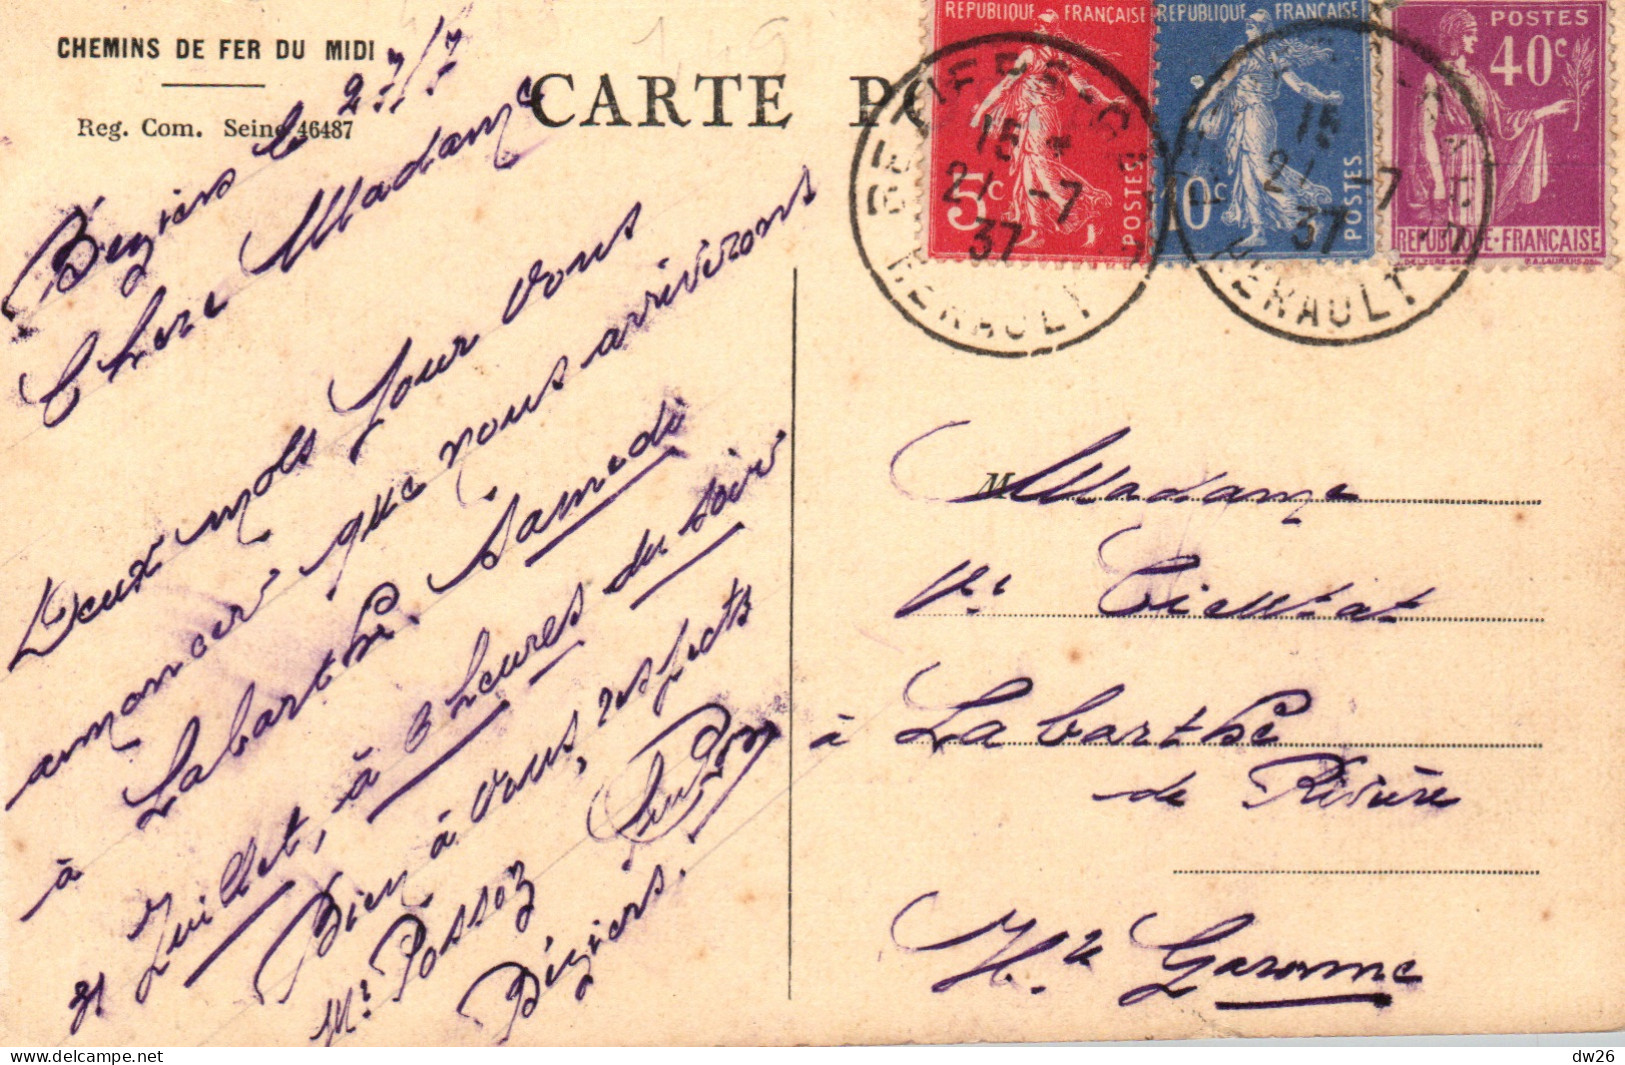 CHEMINS DE FER DU MIDI
Reg. Com. Seine 46487
CARTE PO
REPUBLIQUE FRANÇAISE
5c
POSTES
REPUBLIQUE FRANÇAISE
10c
POSTES
POSTES
40c
REPUBLIQUE-FRANÇAISE
BEZIERS
15
27 -7
37
HERAULT
15
27 -7
37
HERAULT
Béziers le 27/7
Chere Madame
Deux mots pour vous
annoncer que nous arriverons
à Labarthe. Samedi
31 Juillet, à 6 heures du soir
Bien à vous, respects
Mr Possoz
Béziers.
M
Madame
Vve
à Labarthe
de Rivière
Hte Garonne
dw26